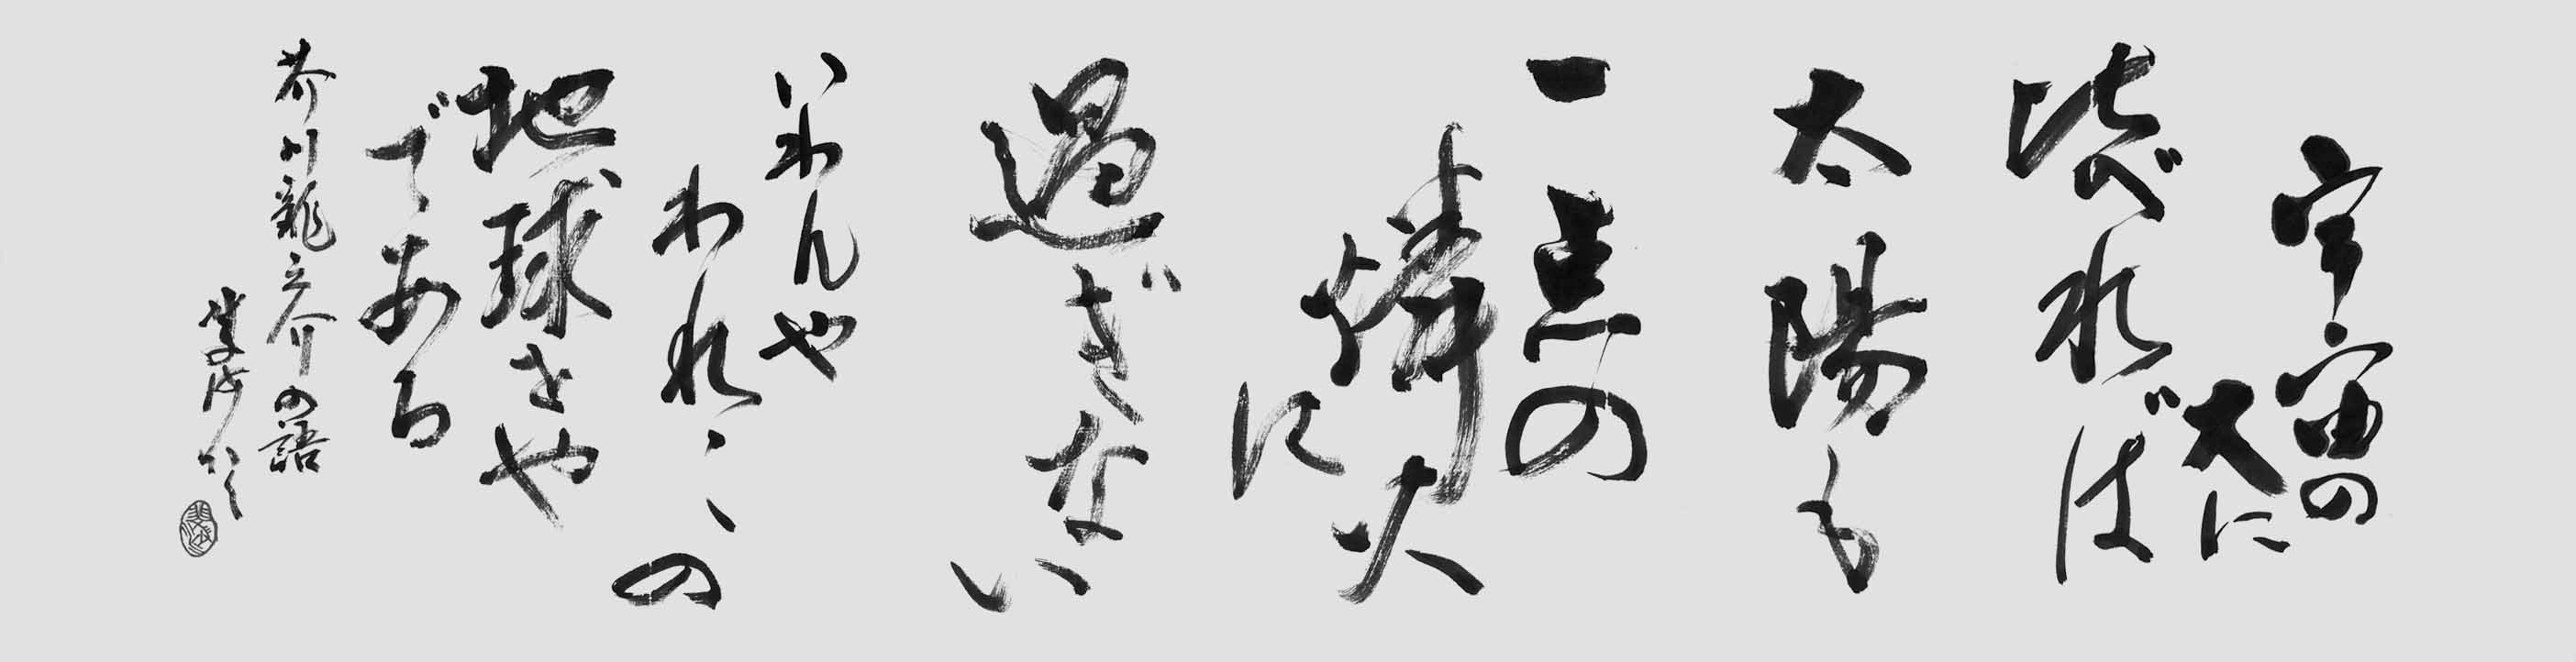 宇宙の
大に
比べれば
太陽も
一点の
燐火
に
過ぎない
いわんや
われ〱の
地球をや
である
芥川龍之介の語